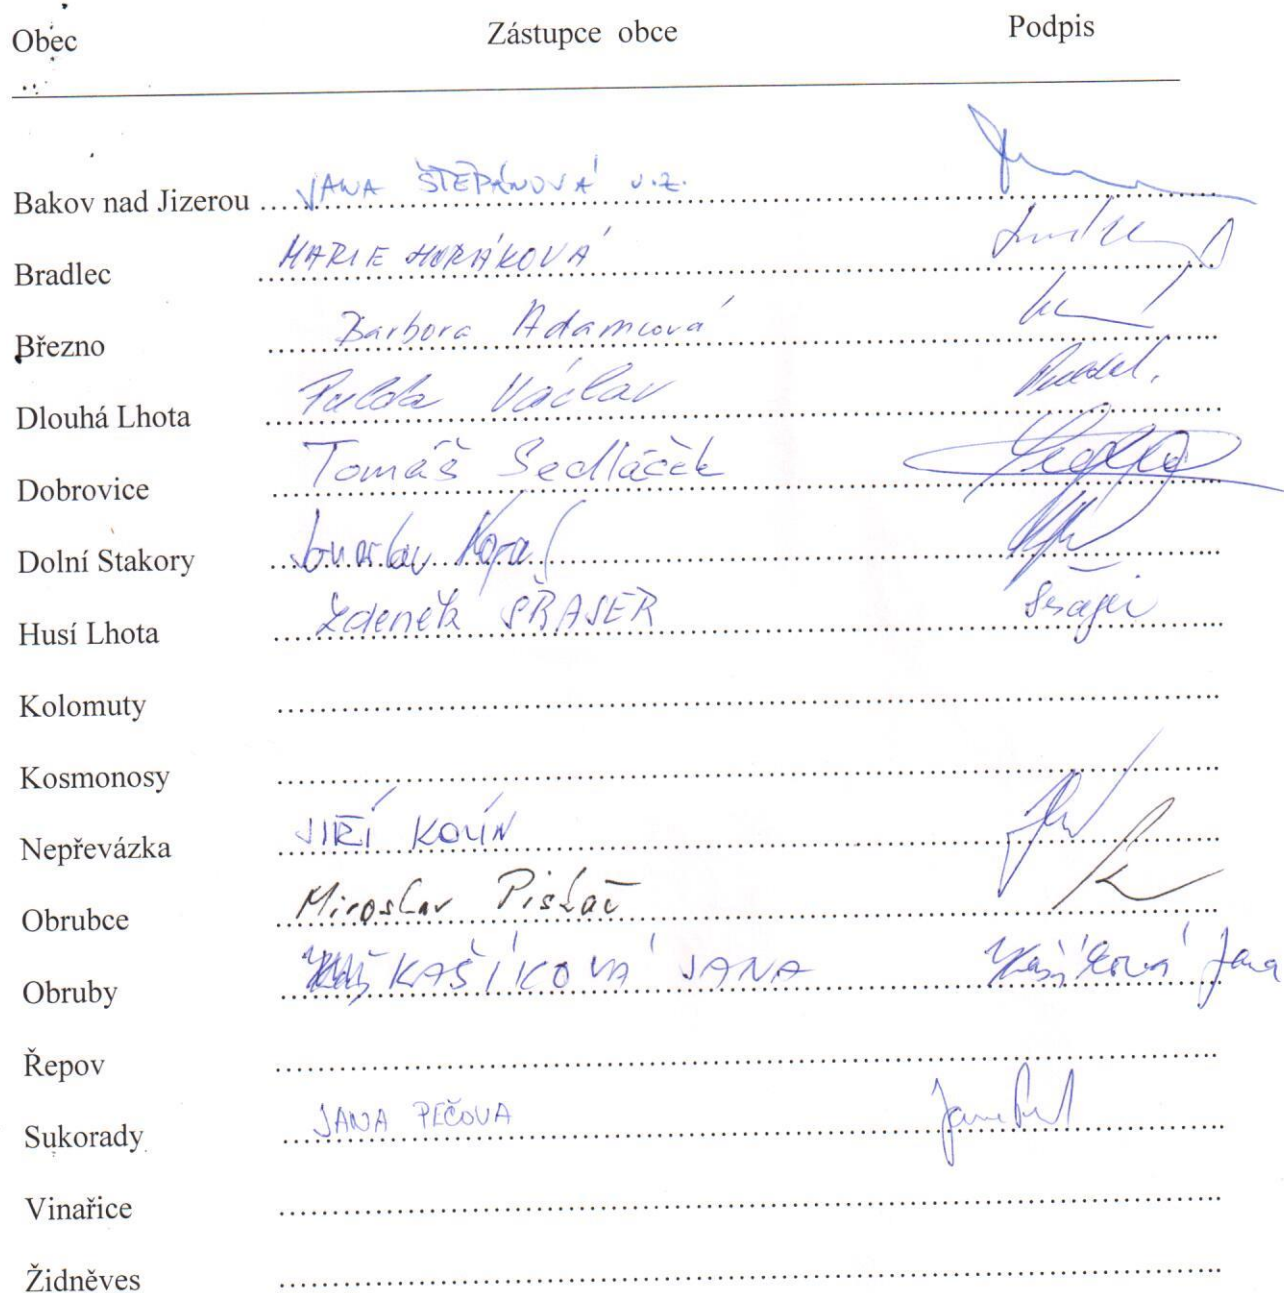 Obec Zástupce obce Podpis
Bakov nad Jizerou JANA ŠTĚPÁNOVÁ v.z.
Bradlec MARIE HORÁKOVÁ
Březno Barbora Adamcová
Dlouhá Lhota Václav
Dobrovice Tomáš Sedláček
Dolní Stakory
Husí Lhota Zdeněk ŠŘAJER
Kolomuty
Kosmonosy
Nepřevázka JIŘÍ KOLÍN
Obrubce Miroslav
Obruby KAŠÍKOVÁ JANA Kašíková Jana
Řepov
Sukorady JANA PEČOVA
Vinařice
Židněves